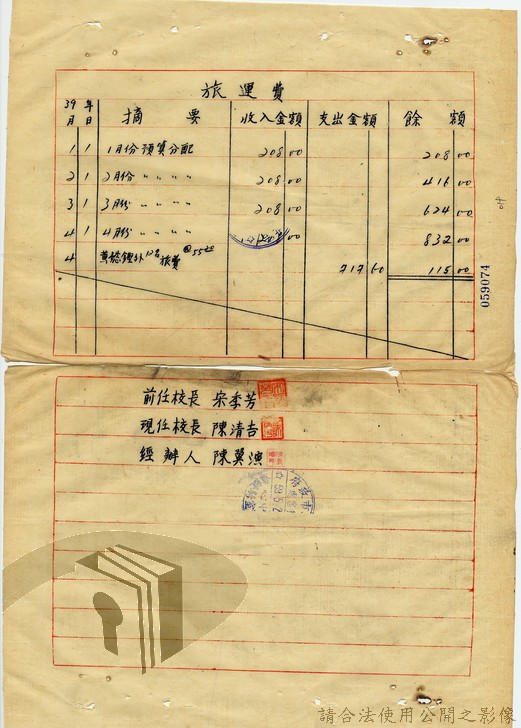 旅運費
39年
月 日 摘要 收入金額 支出金額 餘額
1 1 1月份預算分配 208 00 208 00
2 1 2月份 〃 〃 〃 〃 208 00 416 00
3 1 3月份 〃 〃 〃 〃 208 00 624 00
4 1 4月份 〃 〃 〃 〃 00 832 00
4 外12名旅費 717 60 115 00
059074
前任校長 宋季芳
現任校長 陳清吉
經辦人 陳冀漁
請合法使用公開之影像